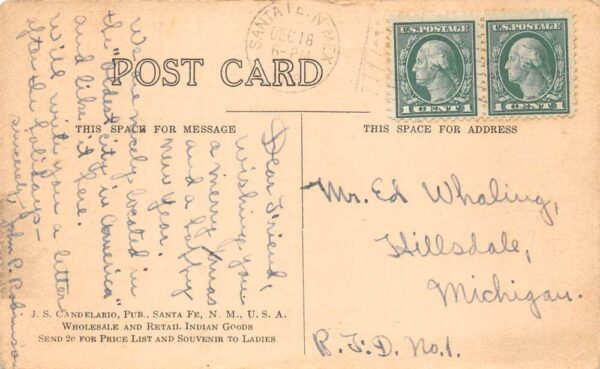 SANTA FE, N. MEX.
DEC 18
6-PM
U.S. POSTAGE
1 CENT 1
U.S. POSTAGE
1 CENT 1
POST CARD
THIS SPACE FOR MESSAGE
THIS SPACE FOR ADDRESS
Dear Friend,
wishing you
a merry Xmas
and a happy
New Year.
We are nicely located in
the "oldest city in America"
and like it here.
Will write you a letter
after the holidays—
sincerely, John P. Robinson
Mr. Ed Whaling,
Hillsdale,
Michigan.
R.F.D. No. 1.
J. S. Candelario, Pub., Santa Fe, N. M., U. S. A.
Wholesale and Retail Indian Goods
Send 2c for Price List and Souvenir to Ladies